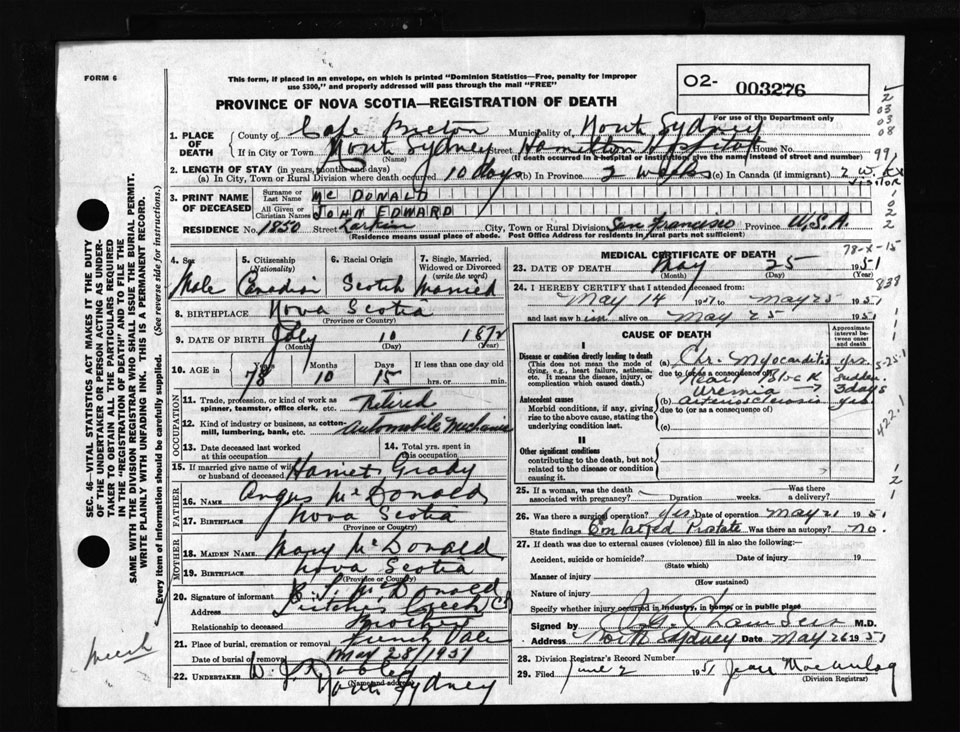 FORM 6
This form, if placed in an envelope, on which is printed "Dominion Statistics—Free, penalty for improper
use $300," and properly addressed will pass through the mail "FREE"
O2- 003276
PROVINCE OF NOVA SCOTIA—REGISTRATION OF DEATH
For use of the Department only
1. PLACE OF DEATH
County of Cape Breton Municipality of North Sydney
If in City or Town North Sydney Street Hamilton Hospital House No.
(Name) (If death occurred in a hospital or institution, give the name instead of street and number)
2. LENGTH OF STAY (in years, months and days)
(a) In City, Town or Rural Division where death occurred 10 days (b) In Province 2 weeks (c) In Canada (if immigrant) 2 w.
Visitor
3. PRINT NAME OF DECEASED
Surname or Last Name Mc DONALD
All Given or Christian Names JOHN EDWARD
RESIDENCE No. 1850 Street Larkin City, Town or Rural Division San Francisco Province U.S.A.
(Residence means usual place of abode. Post Office Address for residents in rural parts not sufficient)
4. Sex Male
5. Citizenship (Nationality) Canadian
6. Racial Origin Scotch
7. Single, Married, Widowed or Divorced (write the word) Married
8. BIRTHPLACE Nova Scotia
(Province or Country)
9. DATE OF BIRTH July 10 1872
(Month) (Day) (Year)
10. AGE in Years 78 Months 10 Days 15 If less than one day old
hrs. or min.
OCCUPATION
11. Trade, profession, or kind of work as spinner, teamster, office clerk, etc. Retired
12. Kind of industry or business, as cotton-mill, lumbering, bank, etc. Automobile Mechanic
13. Date deceased last worked at this occupation
14. Total yrs. spent in this occupation
15. If married give name of wife or husband of deceased Harriet Grady
FATHER
16. NAME Angus McDonald
17. BIRTHPLACE Nova Scotia
(Province or Country)
MOTHER
18. MAIDEN NAME Mary McDonald
19. BIRTHPLACE Nova Scotia
(Province or Country)
20. Signature of informant McDonald
Address Creek CB
Relationship to deceased Brother
21. Place of burial, cremation or removal French Vale
Date of burial or removal May 28/1951
22. UNDERTAKER W. J.
North Sydney
(Name and address)
MEDICAL CERTIFICATE OF DEATH
78-X-15
23. DATE OF DEATH May 25 1951
(Month) (Day) (Year)
24. I HEREBY CERTIFY that I attended deceased from:
May 14 1951 to May 25 1951
and last saw him alive on May 25 1951
CAUSE OF DEATH
Approximate interval between onset and death
I
Disease or condition directly leading to death
(This does not mean the mode of dying, e.g., heart failure, asthenia, etc. It means the disease, injury, or complication which caused death.)
(a) Chr. Myocarditis yrs.
due to (or as a consequence of)
Heart Block sudden
Uremia 3 days
Antecedent causes
Morbid conditions, if any, giving rise to the above cause, stating the underlying condition last.
(b) arteriosclerosis yrs.
due to (or as a consequence of)
(c)
II
Other significant conditions
contributing to the death, but not related to the disease or condition causing it.
25. If a woman, was the death associated with pregnancy? Duration weeks. Was there a delivery?
26. Was there a surgical operation? yes Date of operation May 21 1951
State findings Enlarged Prostate Was there an autopsy? no.
27. If death was due to external causes (violence) fill in also the following:—
Accident, suicide or homicide? Date of injury 19
(State which)
Manner of injury
(How sustained)
Nature of injury
Specify whether injury occurred in industry, in home, or in public place
Signed by M.D.
Address North Sydney Date May 26 1951
28. Division Registrar's Record Number
29. Filed June 2 1951 Jean
(Division Registrar)
SEC. 46—VITAL STATISTICS ACT MAKES IT THE DUTY
OF THE UNDERTAKER OR PERSON ACTING AS UNDERTAKER
TO OBTAIN ALL THE PARTICULARS REQUIRED
IN THE "REGISTRATION OF DEATH" AND TO FILE THE
SAME WITH THE DIVISION REGISTRAR WHO SHALL ISSUE THE BURIAL PERMIT.
WRITE PLAINLY WITH UNFADING INK. THIS IS A PERMANENT RECORD.
Every item of information should be carefully supplied. (See reverse side for instructions.)
2
03
03
08
99
1
0
2
2
838
5-25-1
422.1
2
1